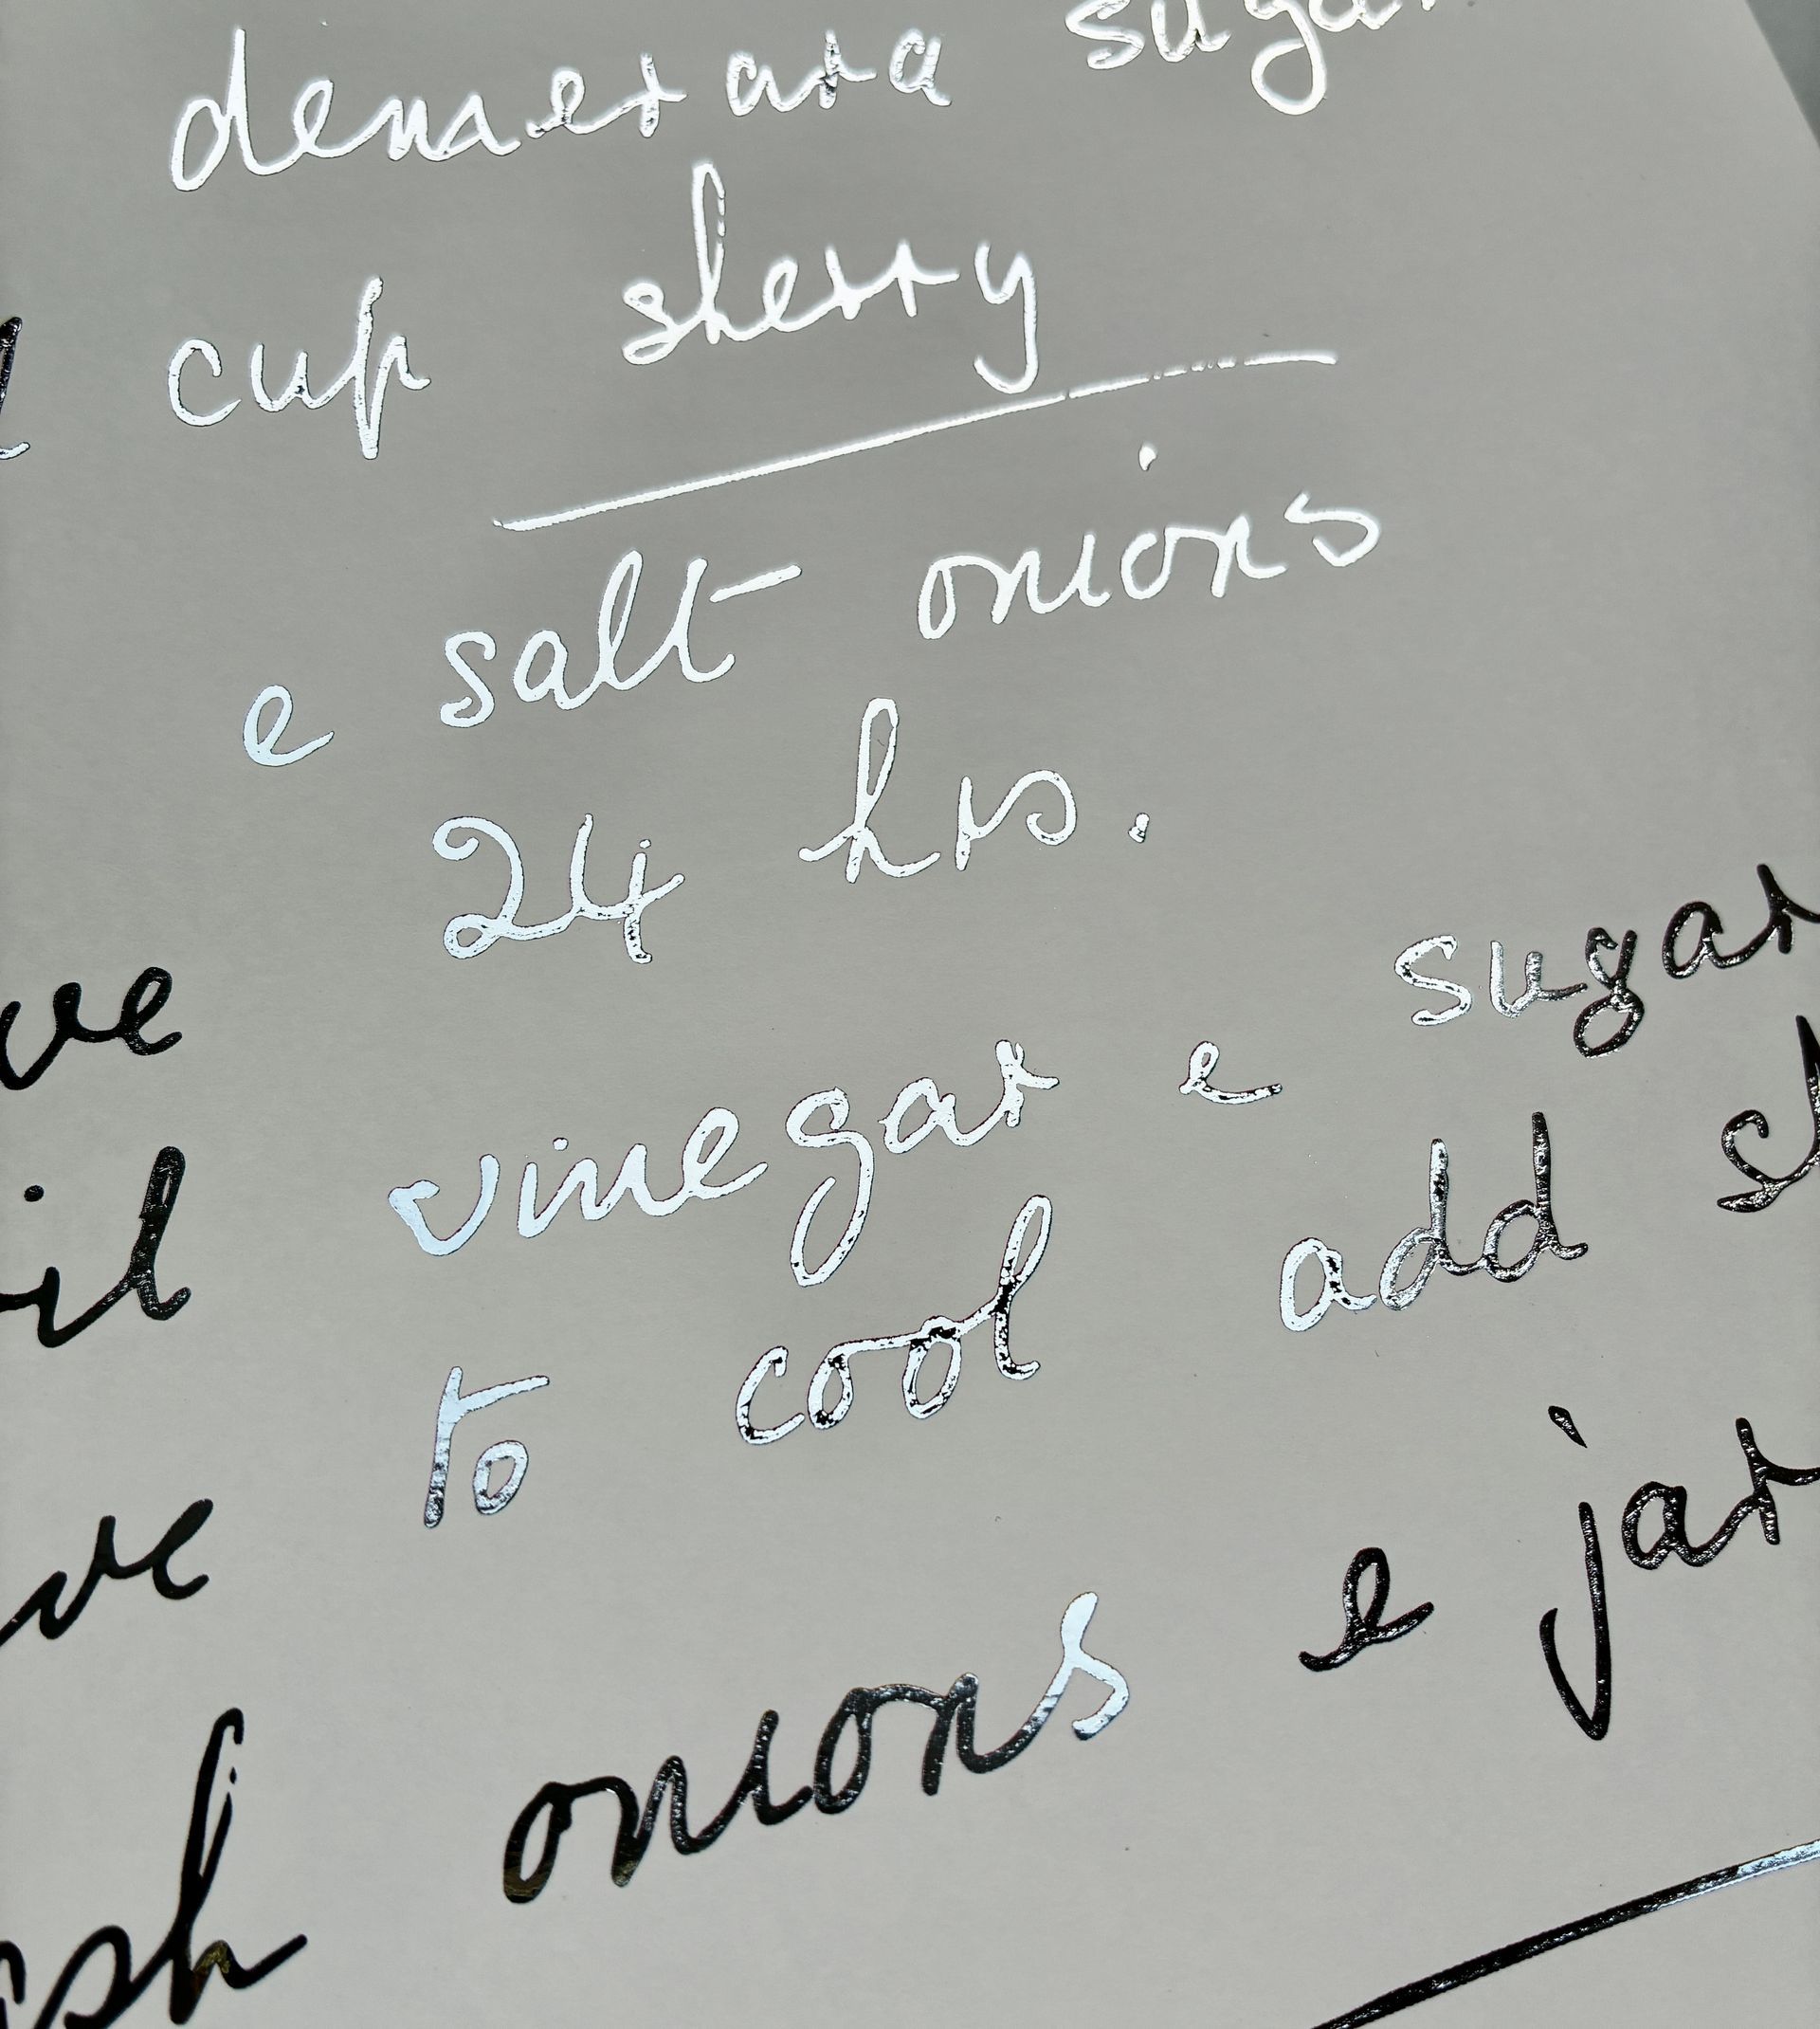 demerara sugar
cup sherry
e salt onions
24 hrs.
ve vinegar e sugar
il to cool add
ve onions e jar
sh